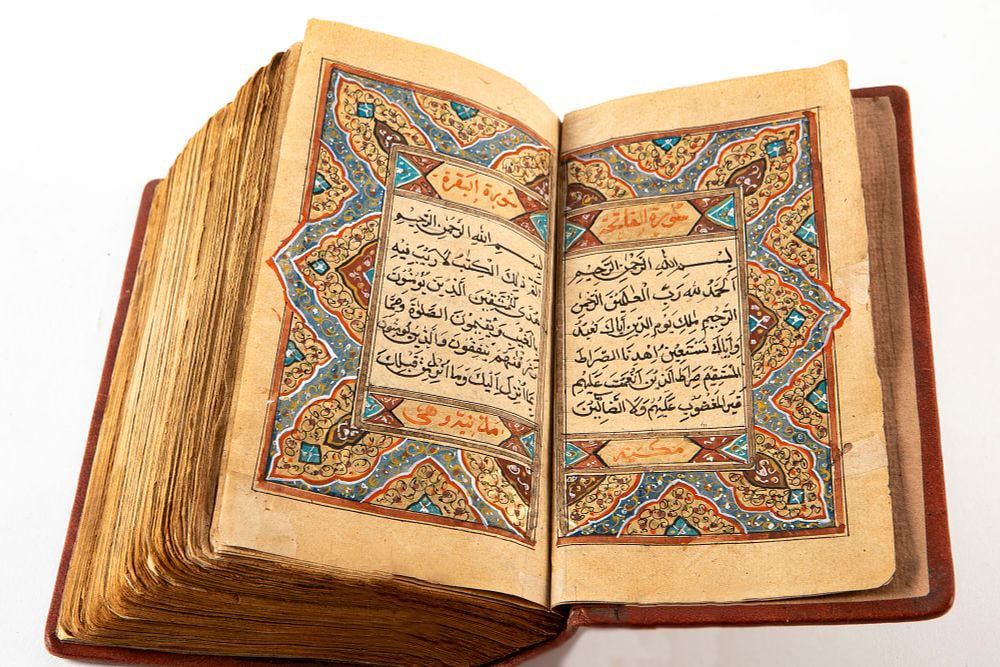 سورة الفاتحة
بسم الله الرحمن الرحيم
الحمد لله رب العلمين الرحمن
الرحيم ملك يوم الدين إياك نعبد
وإياك نستعين اهدنا الصراط
المستقيم صراط الذين أنعمت عليهم
غير المغضوب عليهم ولا الضالين
مكية
سورة البقرة
بسم الله الرحمن الرحيم
الم ذلك الكتب لا ريب فيه
هدى للمتقين الذين يؤمنون
بالغيب ويقيمون الصلوة ومما
رزقنهم ينفقون والذين يؤمنون
بما أنزل إليك وما أنزل من قبلك